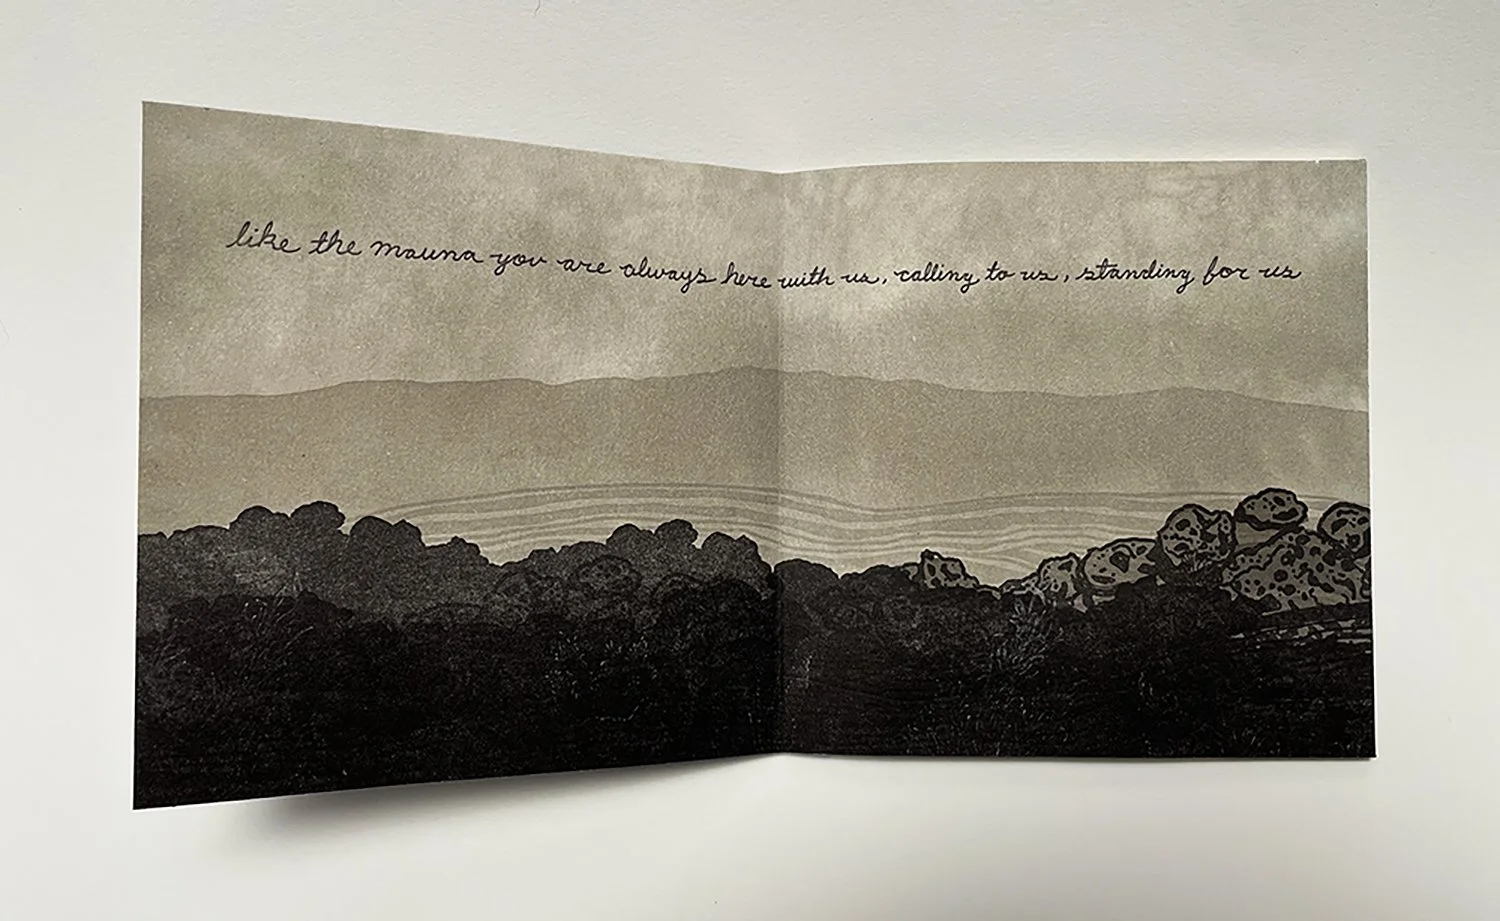 like the mauna you are always here with us, calling to us, standing for us